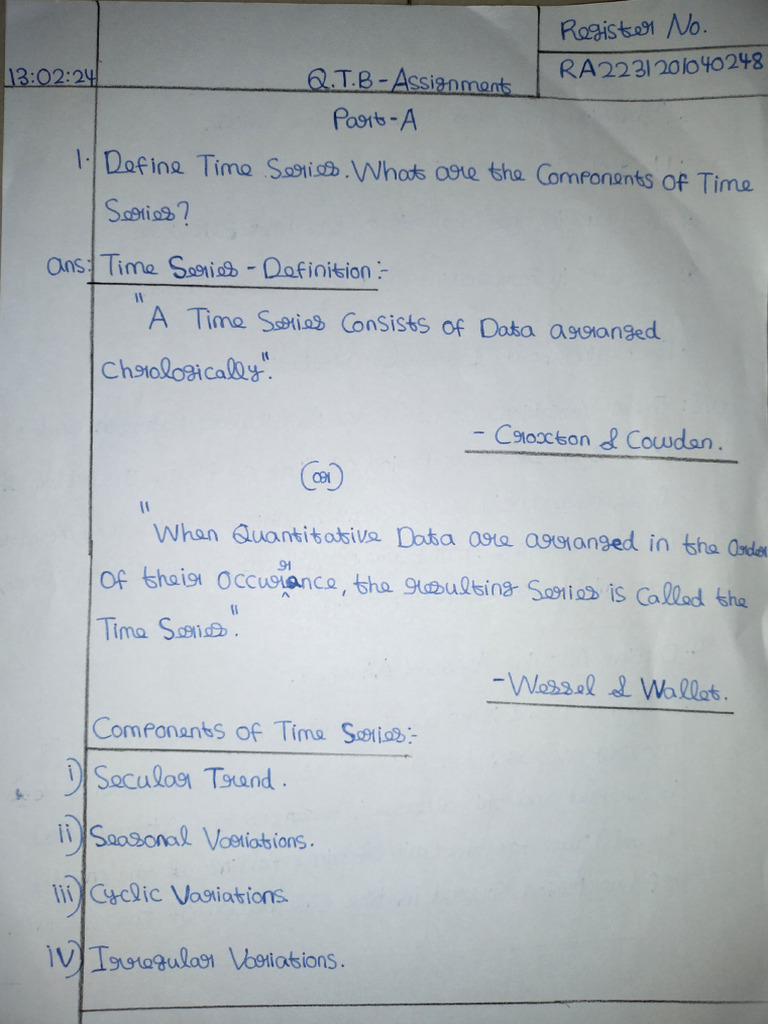 Register No.
13:02:24
Q.T.B-Assignment
RA2231201040248
Part-A
1. Define Time Series. What are the Components of Time
Series?
ans: Time Series - Definition:-
"A Time Series Consists of Data arranged
Chrologically".
- Croxton & Cowden.
(or)
"When Quantitative Data are arranged in the Order
Of their Occurrance, the resulting Series is Called the
Time Series".
- Wessel & Wallet.
Components of Time Series:-
i) Secular Trend.
ii) Seasonal Variations.
iii) Cyclic Variations.
iv) Irregular Variations.